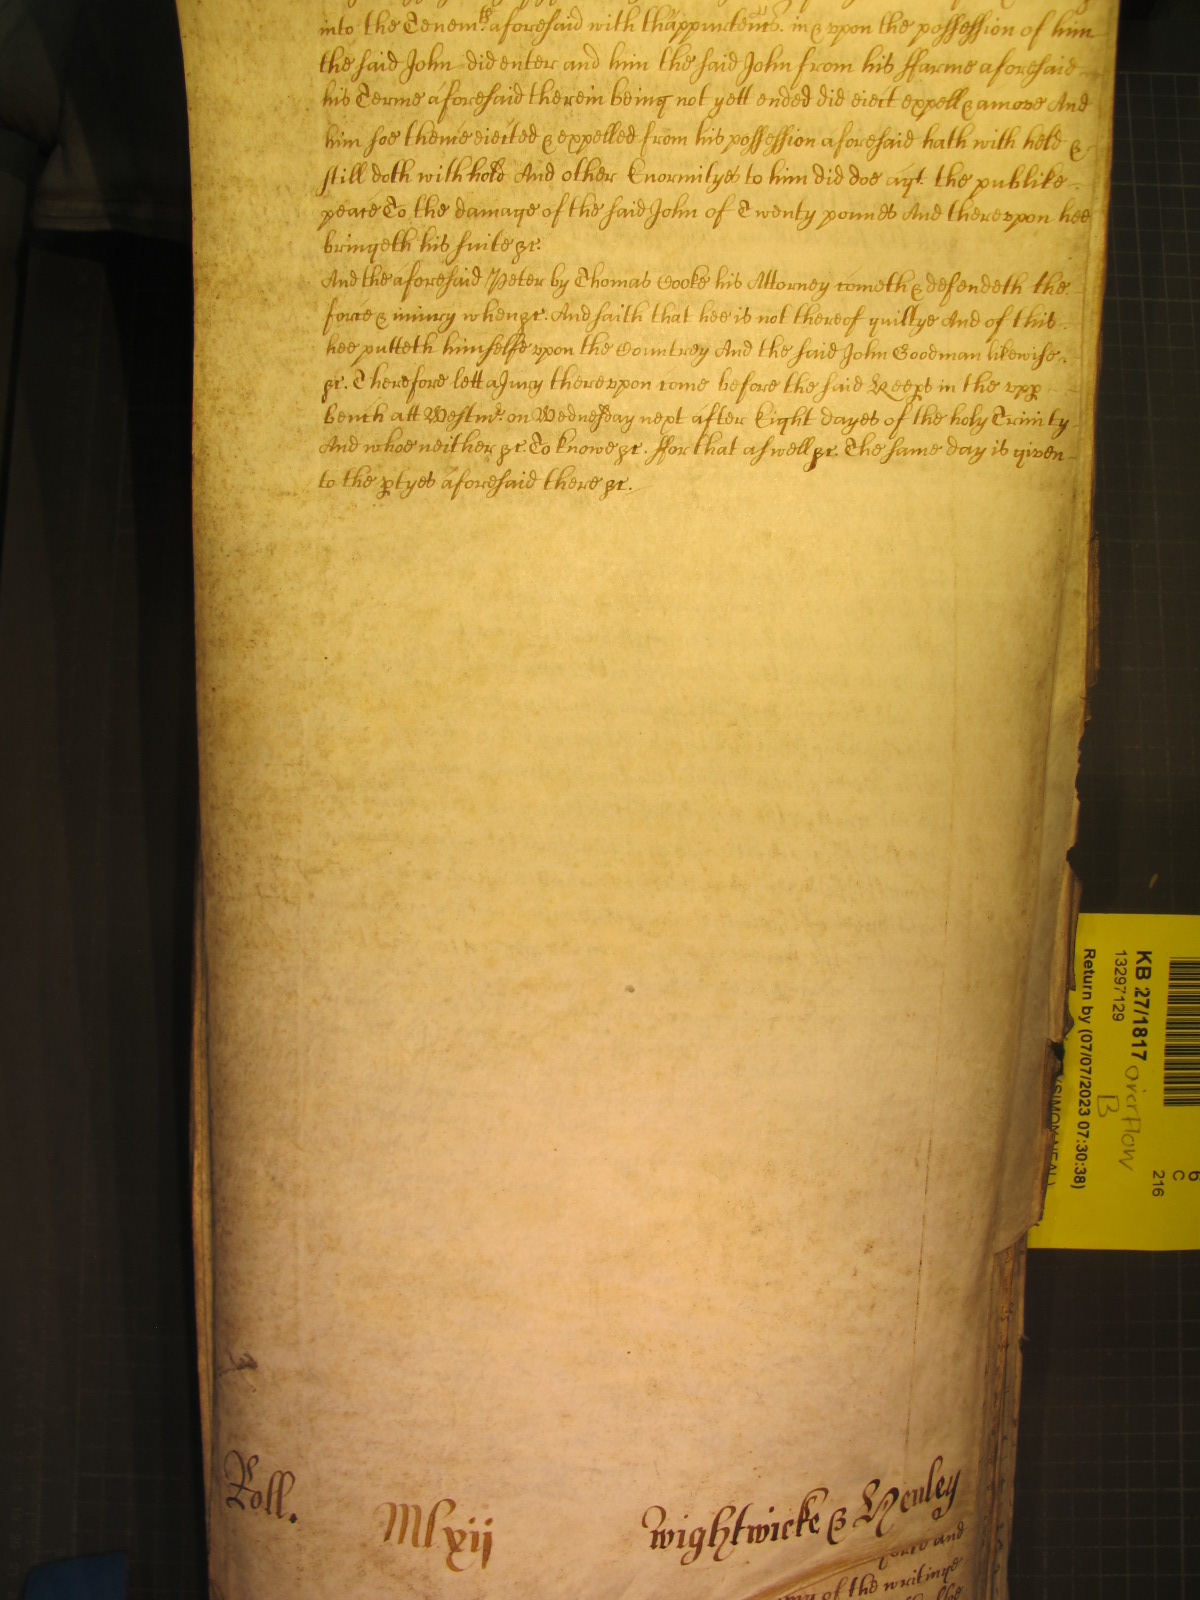 into the Tenemts. aforesaid with thappurtencs. in & vpon the possession of him
the said John did enter and him the said John from his ffarme aforesaid
his Terme aforesaid therein being not yett ended did eiect expell & amove And
him soe thence eiected & expelled from his possession aforesaid hath with held &
still doth with hold And other Enormityes to him did doe agt. the publike
peace To the damage of the said John of Twenty pounds And therevpon hee
bringeth his suite &c.
And the aforesaid Peter by Thomas Cooke his Attorney cometh & defendeth the
force & iniury when &c. And saith that hee is not thereof guiltye And of this
hee putteth himselfe vpon the Countrey And the said John Goodman likewise
&c. Therefore lett a Jury therevpon come before the said Keeps in the vpp
bench att Westmr. on Wednesday next after Eight dayes of the holy Trinity
And whoe neither &c. To knowe &c. ffor that aswell &c. The same day is given
to the ptyes aforesaid there &c.
Roll.
Mlxij
Wightwicke & Henley
force and
of the writinge
KB 27/1817 overflow
B
13297129
Return by (07/07/2023 07:30:38)
(SIMON NEAL)
6
C
216